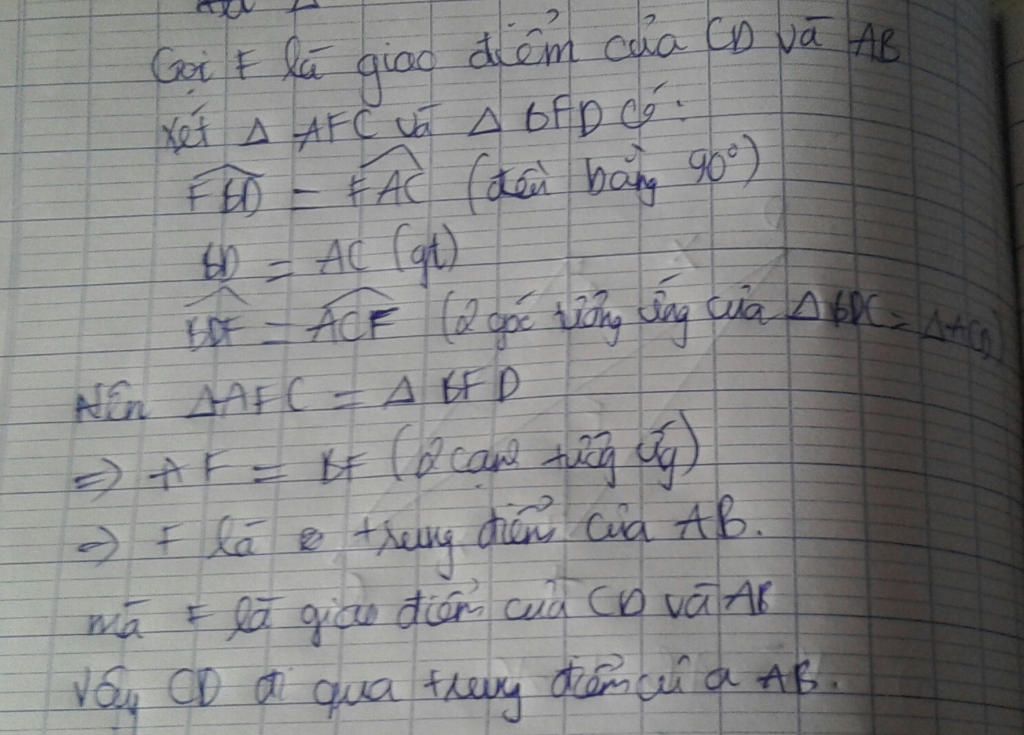 Gọi F là giao điểm của CD và AB
Xét Δ AFC và Δ BFD có:
FBD = FAC (đều bằng 90°)
BD = AC (gt)
BDF = ACF (2 góc tương ứng của Δ BDC = Δ ACD)
Nên Δ AFC = Δ BFD
=> AF = BF (2 cạnh tương ứng)
=> F là trung điểm của AB.
mà F là giao điểm của CD và AB
Vậy CD đi qua trung điểm của AB.